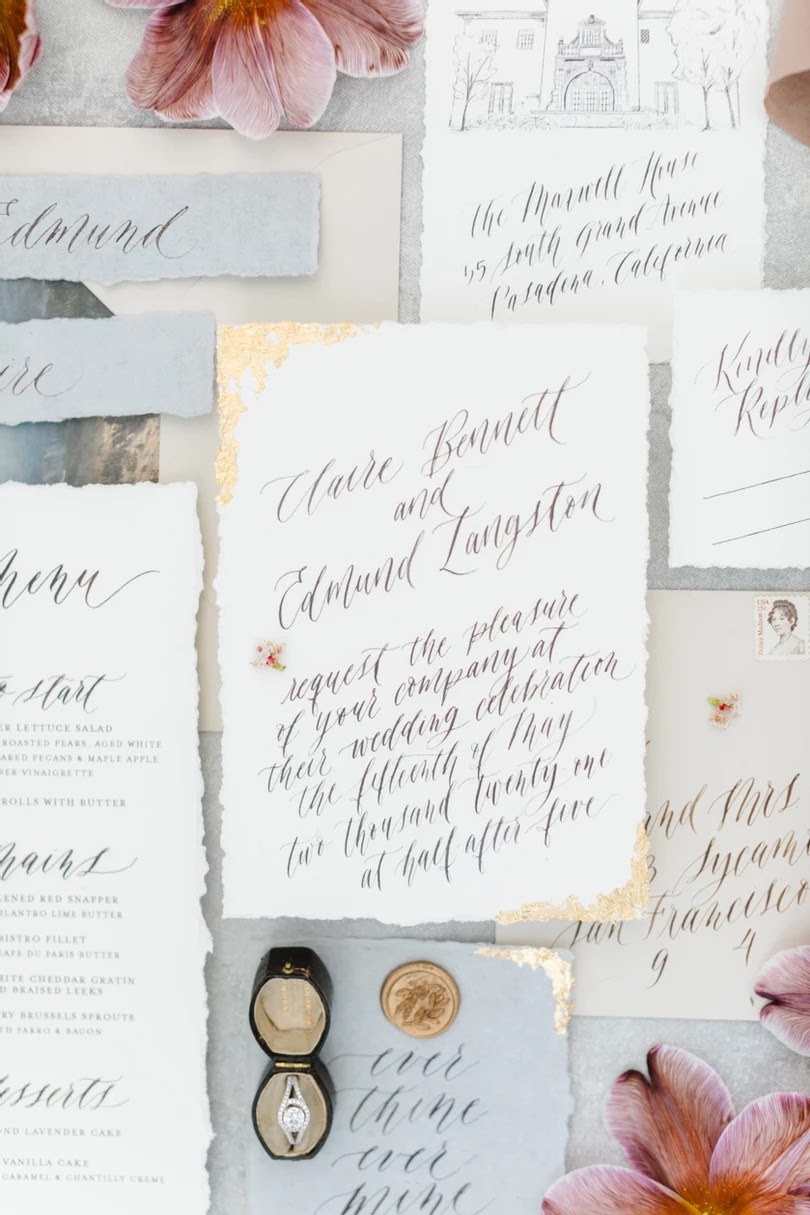 Edmund
the Maxwell House
55 South Grand Avenue
Pasadena, California
Kindly
Claire Bennett
and
Edmund Langston
request the pleasure
of your company at
their wedding celebration
the fifteenth of May
two thousand twenty one
at half after five
menu
start
LETTUCE SALAD
ROASTED PEARS, AGED WHITE
PECANS & MAPLE APPLE
VINAIGRETTE
ROLLS WITH BUTTER
mains
RED SNAPPER
CILANTRO LIME BUTTER
BISTRO FILLET
CAFE DU PARIS BUTTER
WHITE CHEDDAR GRATIN
BRAISED LEEKS
BRUSSELS SPROUTS
WITH FARRO & BACON
desserts
LAVENDER CAKE
VANILLA CAKE
CARAMEL & CHANTILLY CREME
USA
15c
Dolley Madison
and Mrs
3
San Francisco
9 4
ever
thine
ever
mine